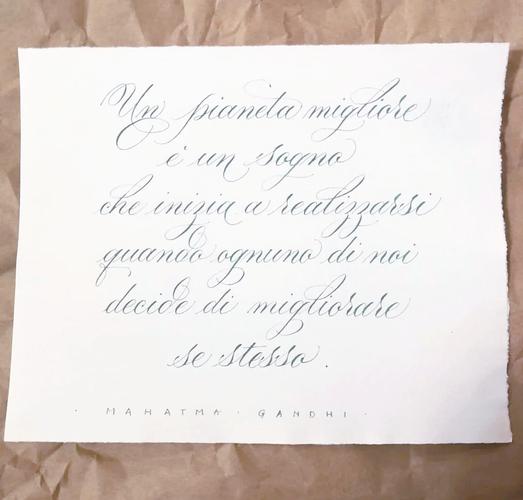 Un pianeta migliore
è un sogno
che inizia a realizzarsi
quando ognuno di noi
decide di migliorare
se stesso.
· MAHATMA · GANDHI ·